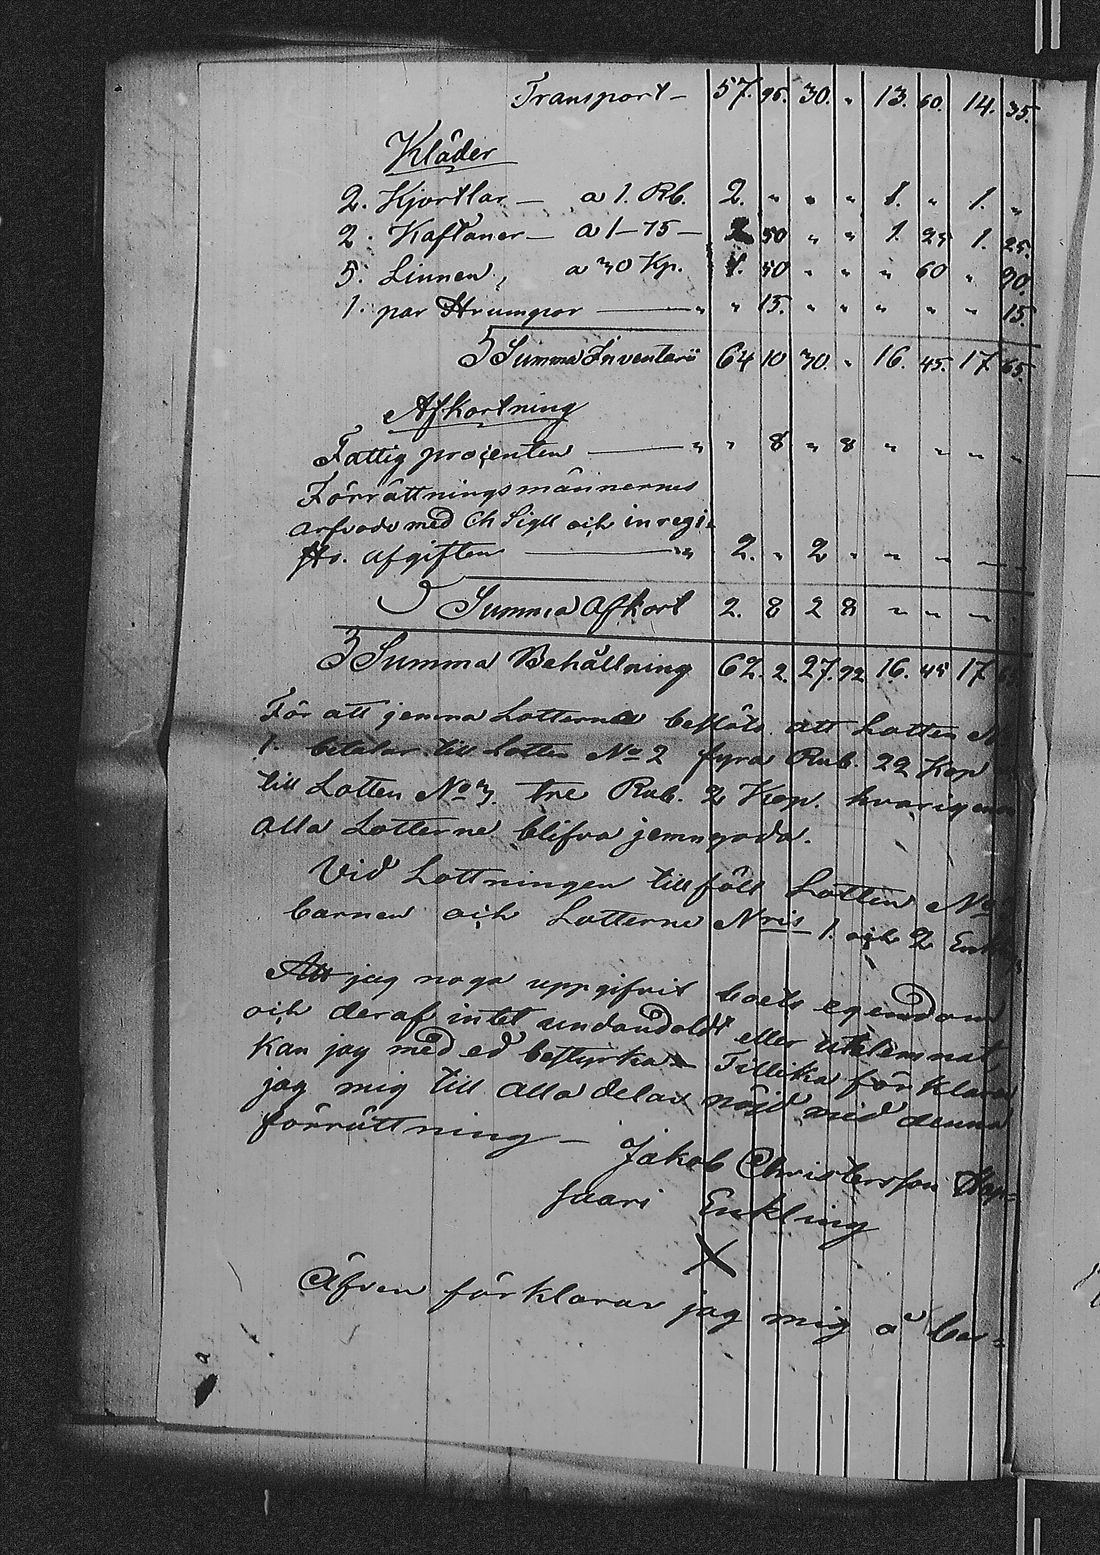 Transport — 57. 95. 30. " 13. 60. 14. 35.
Kläder
2. Kjortlar — a 1. Rb. 2. " " " 1. " 1. "
2. Kaftaner — a 1-75 — 2 50 " " 1. 25 1. 25.
5. Linnen, a 30 Kp. 1. 50 " " " 60 " 90.
1. par Strumpor — " " 15. " " " " " 15.
Summa Inventarii 64 10 30. " 16. 45. 17 65.
Afkortning
Fattig procenten — " " 8 " 8 " " " "
Förrättningsmännernes
arfvode med Ch Sigill och inregi-
str. afgiften — " 2. " 2 " " " " "
Summa Afkort 2. 8 2 8 " " "
Summa Behållning 62. 2. 27. 92 16. 45 17
För att jemna Lotterna beslöts att Lotten N
1. betalar till lotten No 2 fyra Rub. 22 Kop
till Lotten No 3. tre Rub. 2 Kop. hvarigenom
alla Lotterne blifva jemngoda.
Vid Lottningen tillföll Lotten No
barnen och Lotterne Nris 1. och 2 Enkl
Att jag noga uppgifvit boets egendom
och deraf intet undandoldt eller utelemnat,
kan jag med ed bestyrka — Tillika förklarar
jag mig till alla delar nöjd med denna
förrättning — Jakob Christersson Hap-
saari Enkling
X
Äfven förklarar jag mig å bar-